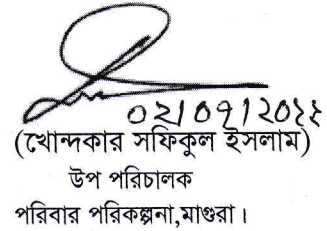 ০২/০৭/২০২২
(খোন্দকার সফিকুল ইসলাম)
উপ পরিচালক
পরিবার পরিকল্পনা,মাগুরা।